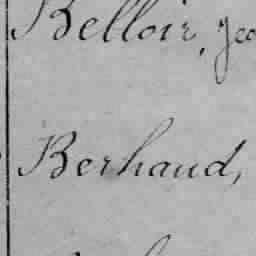 Belloir, Jea
Berhaud,